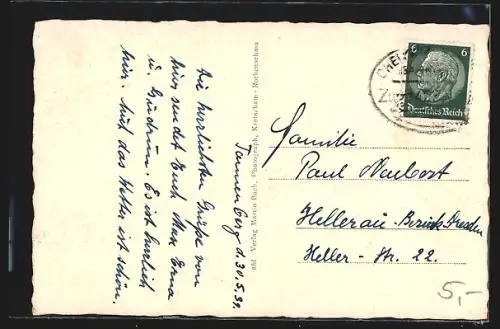 Tannenberg d. 30.5.39.
Die herzlichsten Grüße von
hier sendet Euch Max Erna
u. Gudrun. Es ist herrlich
hier. Auch das Wetter ist schön.
Verlag Martin Bach, Photograph, Kretscham-Rothensehma
6 6
Deutsches Reich
Familie
Paul Neubert
Hellerau-Bezirk Dresden
Heller-Str. 22.
5,-